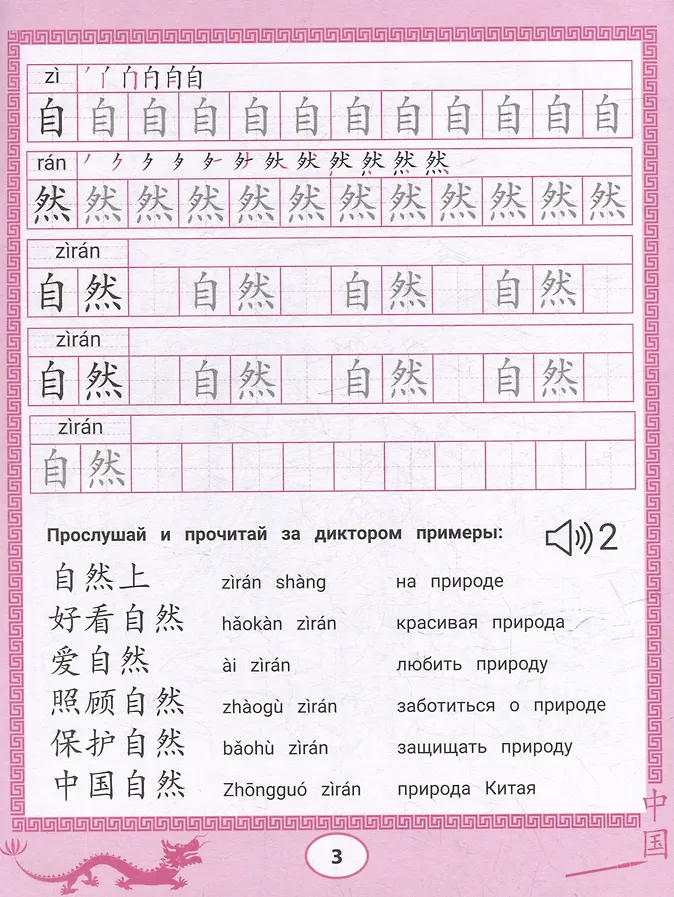 zì
自 自 自 自 自 自 自 自 自 自 自 自
rán
然 然 然 然 然 然 然 然 然 然 然 然
zìrán
自 然 自 然 自 然 自 然
zìrán
自 然 自 然 自 然 自 然
zìrán
自 然
Прослушай и прочитай за диктором примеры: 2
自然上 zìrán shàng на природе
好看自然 hǎokàn zìrán красивая природа
爱自然 ài zìrán любить природу
照顾自然 zhàogù zìrán заботиться о природе
保护自然 bǎohù zìrán защищать природу
中国自然 Zhōngguó zìrán природа Китая
中国
3